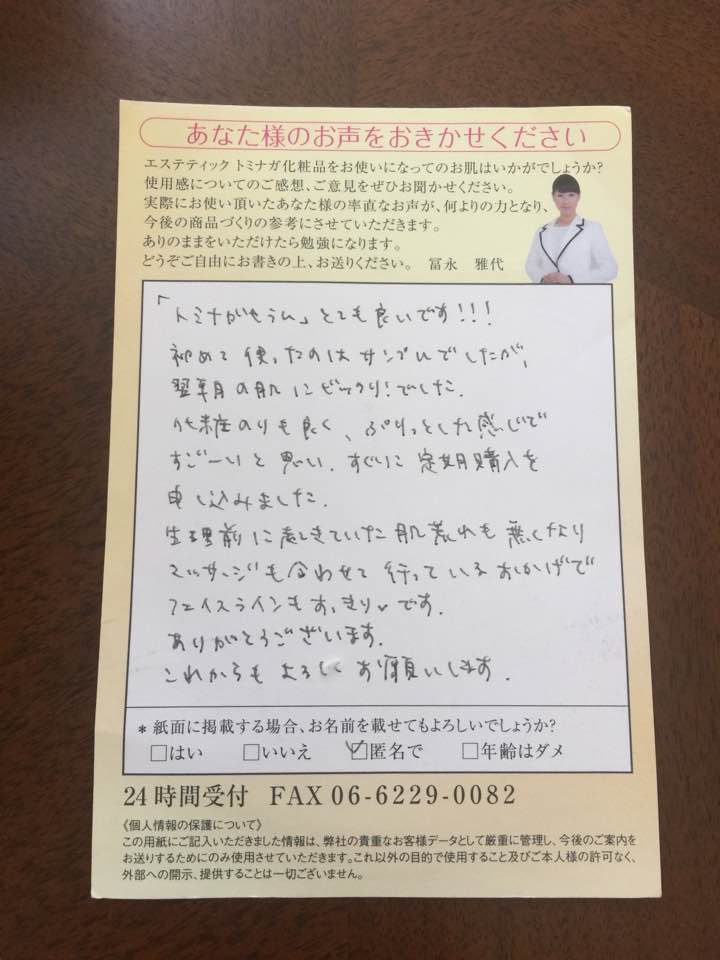 あなた様のお声をおきかせください
エステティック トミナガ化粧品をお使いになってのお肌はいかがでしょうか?
使用感についてのご感想、ご意見をぜひお聞かせください。
実際にお使い頂いたあなた様の率直なお声が、何よりの力となり、
今後の商品づくりの参考にさせていただきます。
ありのままをいただけたら勉強になります。
どうぞご自由にお書きの上、お送りください。 冨永 雅代
「トミナがせうひ」とても良いです!!!
初めて使ったのはサンプルでしたが、
翌朝の肌にビックリ!でした.
化粧のりも良く、ぷりっとした感じで
すごーいと思い、すぐに定期購入を
申し込みました.
生理前に起きていた肌荒れも無くなり
マッサージも合わせて行っているおかげで
フェイスラインもすっきり♡です.
ありがとうございます.
これからもよろしくお願いします.
*紙面に掲載する場合、お名前を載せてもよろしいでしょうか?
□はい □いいえ ☑匿名で □年齢はダメ
24時間受付 FAX 06-6229-0082
《個人情報の保護について》
この用紙にご記入いただきました情報は、弊社の貴重なお客様データとして厳重に管理し、今後のご案内を
お送りするためにのみ使用させていただきます。これ以外の目的で使用すること及びご本人様の許可なく、
外部への開示、提供することは一切ございません。